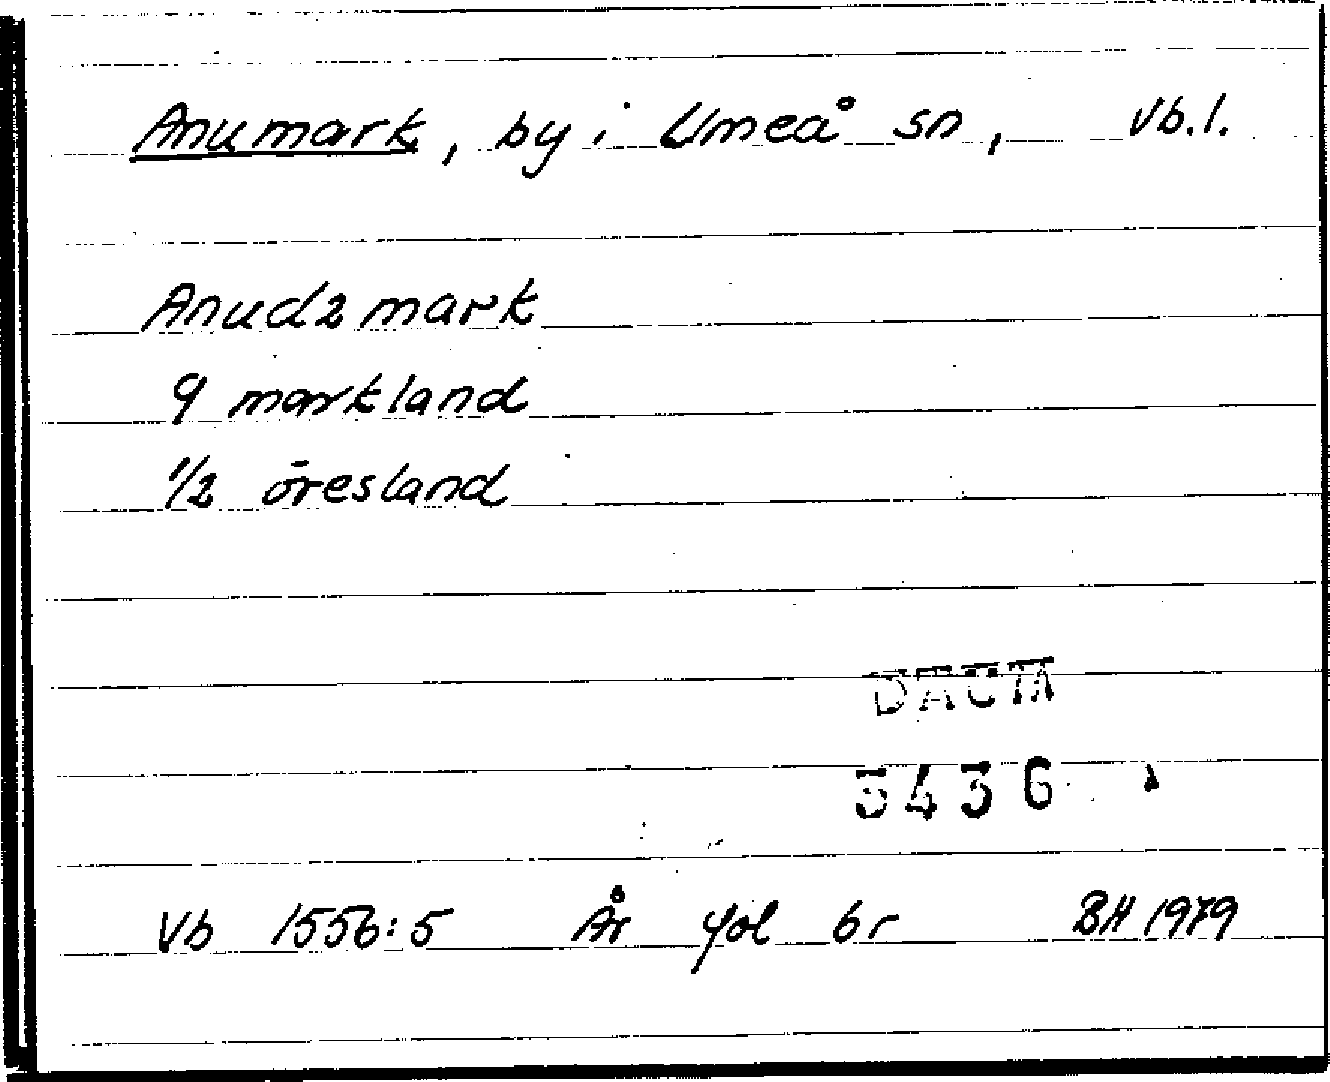 Anumark, by i Umeå sn, Vb.l.
Anudzmark
9 markland
1/2 öresland
DACTA
5436
Vb 1556:5 År fol 6r BH 1979